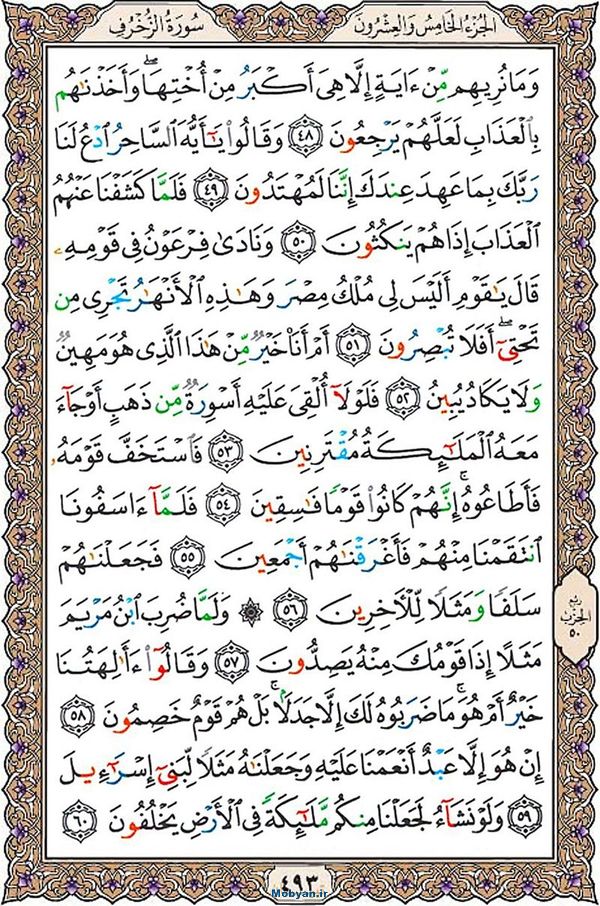 الجزء الخامس والعشرون
سورة الزخرف
وَمَا نُرِيهِم مِّنْ ءَايَةٍ إِلَّا هِىَ أَكْبَرُ مِنْ أُخْتِهَاۖ وَأَخَذْنَٰهُم
بِٱلْعَذَابِ لَعَلَّهُمْ يَرْجِعُونَ ٤٨ وَقَالُوا۟ يَٰٓأَيُّهَ ٱلسَّاحِرُ ٱدْعُ لَنَا
رَبَّكَ بِمَا عَهِدَ عِندَكَ إِنَّنَا لَمُهْتَدُونَ ٤٩ فَلَمَّا كَشَفْنَا عَنْهُمُ
ٱلْعَذَابَ إِذَا هُمْ يَنكُثُونَ ٥٠ وَنَادَىٰ فِرْعَوْنُ فِى قَوْمِهِۦ
قَالَ يَٰقَوْمِ أَلَيْسَ لِى مُلْكُ مِصْرَ وَهَٰذِهِ ٱلْأَنْهَٰرُ تَجْرِى مِن
تَحْتِىٓۖ أَفَلَا تُبْصِرُونَ ٥١ أَمْ أَنَا۠ خَيْرٌ مِّنْ هَٰذَا ٱلَّذِى هُوَ مَهِينٌ
وَلَا يَكَادُ يُبِينُ ٥٢ فَلَوْلَآ أُلْقِىَ عَلَيْهِ أَسْوِرَةٌ مِّن ذَهَبٍ أَوْ جَآءَ
مَعَهُ ٱلْمَلَٰٓئِكَةُ مُقْتَرِنِينَ ٥٣ فَٱسْتَخَفَّ قَوْمَهُۥ
فَأَطَاعُوهُۚ إِنَّهُمْ كَانُوا۟ قَوْمًا فَٰسِقِينَ ٥٤ فَلَمَّآ ءَاسَفُونَا
ٱنتَقَمْنَا مِنْهُمْ فَأَغْرَقْنَٰهُمْ أَجْمَعِينَ ٥٥ فَجَعَلْنَٰهُمْ
سَلَفًا وَمَثَلًا لِّلْءَاخِرِينَ ٥٦ ۞ وَلَمَّا ضُرِبَ ٱبْنُ مَرْيَمَ
مَثَلًا إِذَا قَوْمُكَ مِنْهُ يَصِدُّونَ ٥٧ وَقَالُوٓا۟ ءَأَٰلِهَتُنَا
خَيْرٌ أَمْ هُوَۚ مَا ضَرَبُوهُ لَكَ إِلَّا جَدَلًۢاۚ بَلْ هُمْ قَوْمٌ خَصِمُونَ ٥٨
إِنْ هُوَ إِلَّا عَبْدٌ أَنْعَمْنَا عَلَيْهِ وَجَعَلْنَٰهُ مَثَلًا لِّبَنِىٓ إِسْرَٰٓءِيلَ
٥٩ وَلَوْ نَشَآءُ لَجَعَلْنَا مِنكُم مَّلَٰٓئِكَةً فِى ٱلْأَرْضِ يَخْلُفُونَ ٦٠
ربع
الحزب
٥٠
٤٩٣
Mobyan.ir